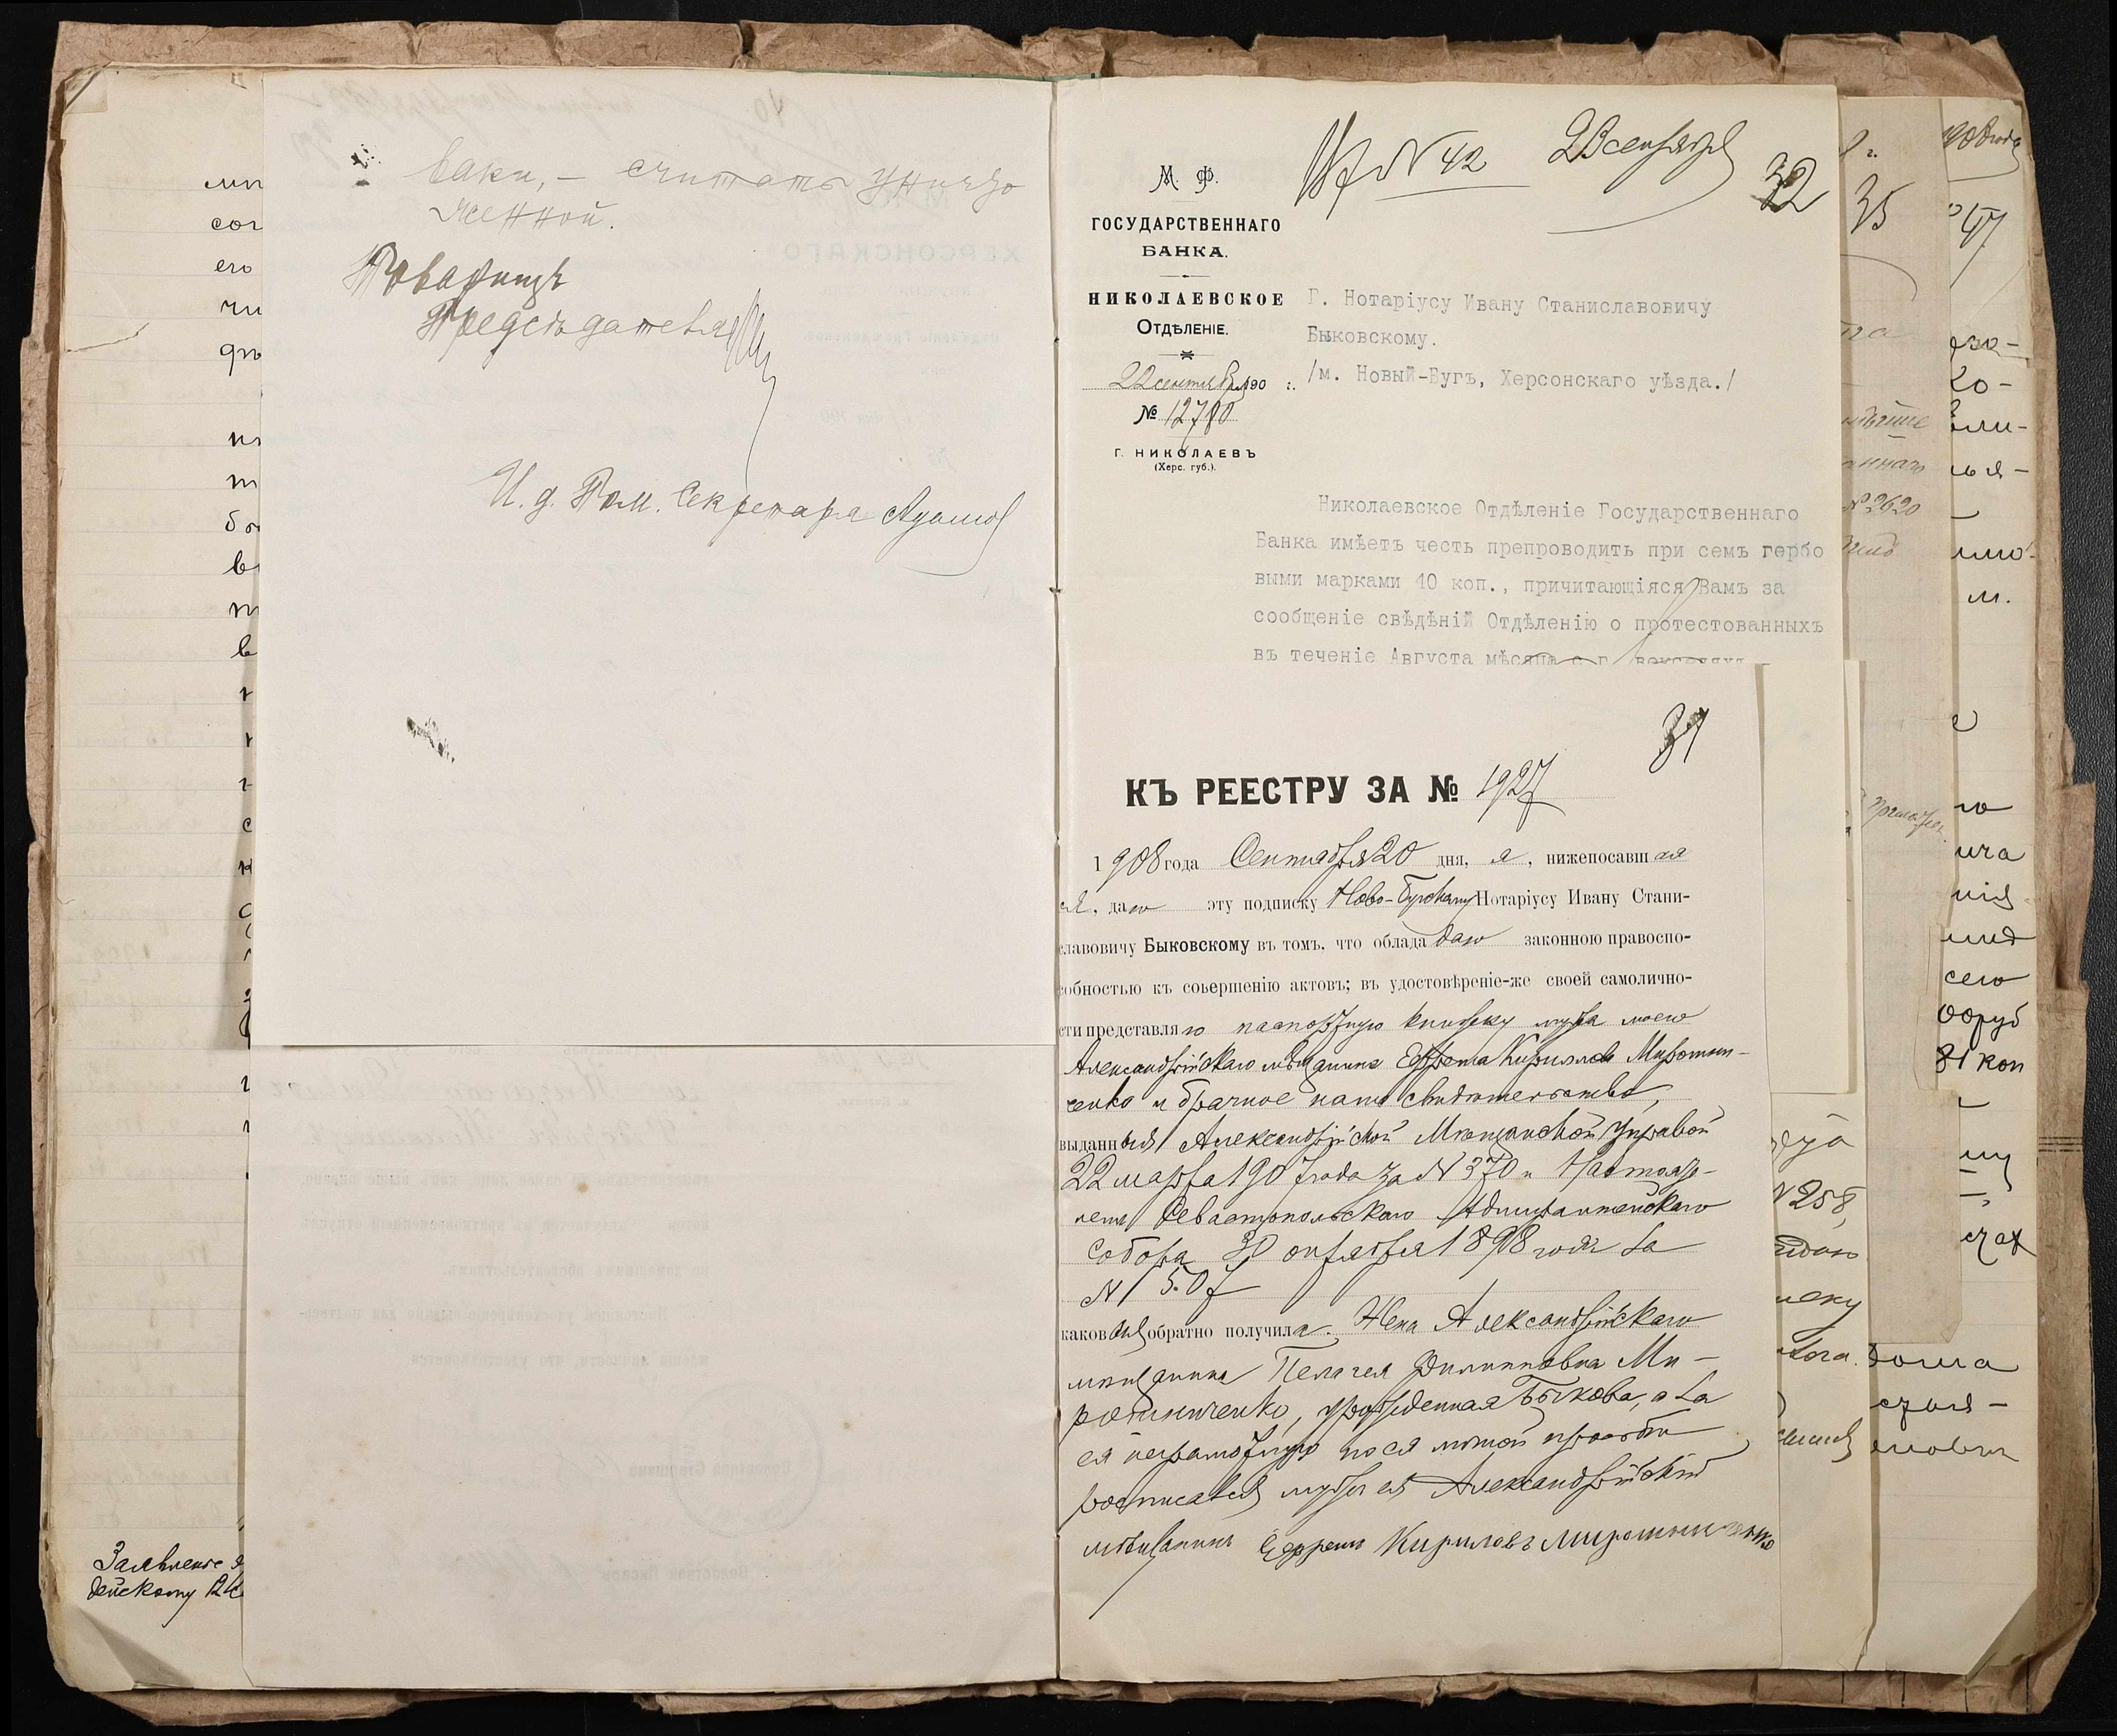 ваки, – считать уничто
женной.
Товарищъ
Предсѣдателя
И. д. Пом. Секретаря
Заявленіе
дѣйскому
Вх № 42 23 сентября
32
М. Ф.
ГОСУДАРСТВЕННАГО
БАНКА.
НИКОЛАЕВСКОЕ
ОТДѢЛЕНІЕ.
22 сентября 190 г.
№ 12780
Г. НИКОЛАЕВЪ
(Херс. губ.).
Г. Нотаріусу Ивану Станиславовичу
Быковскому.
/м. Новый-Бугъ, Херсонскаго уѣзда./
Николаевское Отдѣленіе Государственнаго
Банка имѣетъ честь препроводить при семъ гербо
выми марками 40 коп., причитающіяся Вамъ за
сообщеніе свѣдѣній Отдѣленію о протестованныхъ
въ теченіе Августа мѣсяца с.г. векселяхъ
31
КЪ РЕЕСТРУ ЗА № 1927
1908 года Сентября 20 дня, я, нижепосавшая
ся, даю эту подписку Ново-Бугскому Нотаріусу Ивану Стани-
славовичу Быковскому въ томъ, что обладаю законною правоспо-
собностью къ совершенію актовъ; въ удостовѣреніе-же своей самолично-
сти представляю паспортную книжку мужа моего
Александрійскаго мѣщанина Ефрема Кирилова Мирошни-
ченко и брачное наше свидѣтельство,
выданныя Александрійской Мѣщанской Управой
22 марта 1907 года за № 370 и Настояте-
лемъ Севастопольскаго Адмиралтейскаго
Собора 30 октября 1898 года за
№ 507
каковыя обратно получила. Жена Александрійскаго
мѣщанина Пелагея Филипповна Ми-
рошниченко, урожденная Быкова, а за
ея неграмотную по ея личной просьбѣ
росписался мужъ ея Александрійскій
мѣщанинъ Ефремъ Кириловъ Мирошниченко
35
№ 2620
№ 258,
сего
81 коп